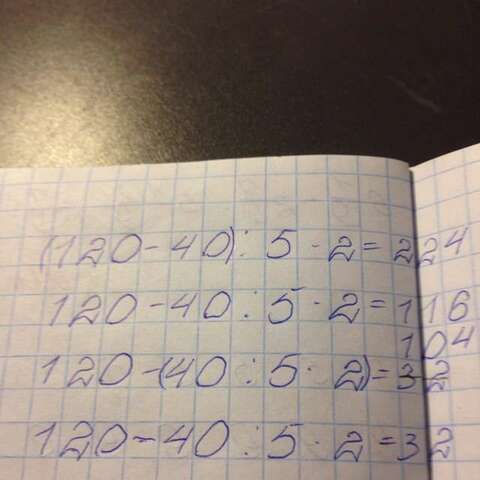 (120-40):5·2=224
120-40:5·2=116
104
120-(40:5·2)=32
120-40:5·2=32